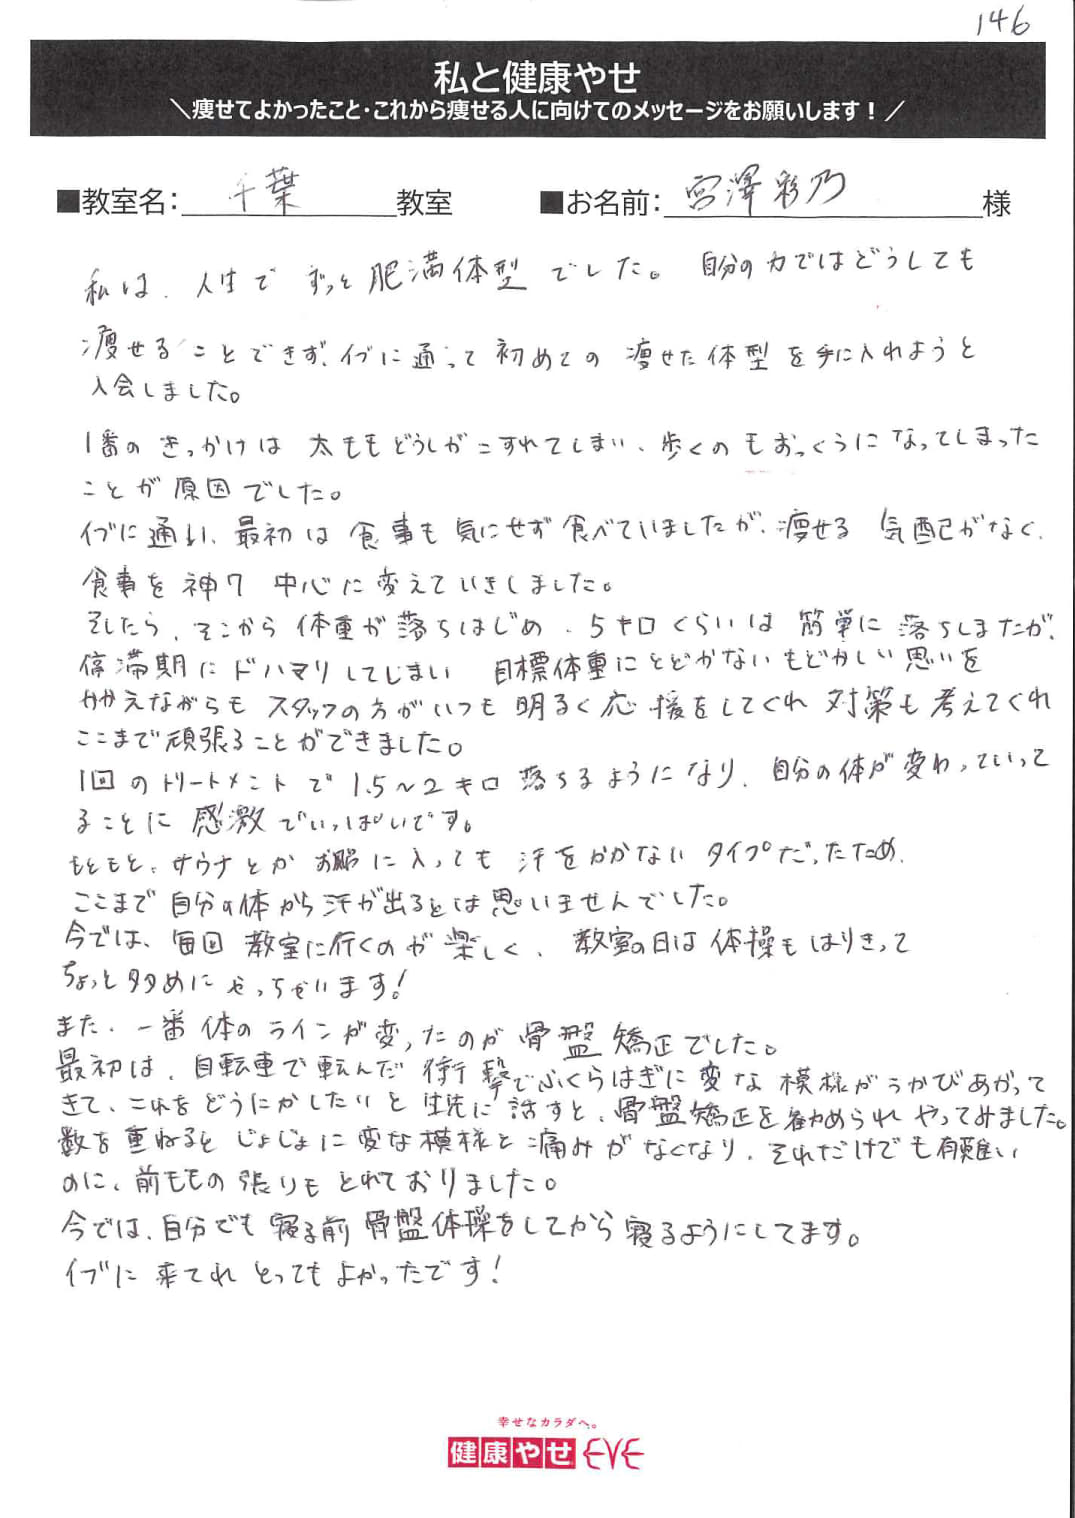 146
私と健康やせ
＼痩せてよかったこと・これから痩せる人に向けてのメッセージをお願いします！／
■教室名: 千葉 教室 ■お名前: 宮澤彩乃 様
私は、人生で ずっと 肥満体型 でした。 自分の力ではどうしても
痩せることできず、イブに通って 初めての 痩せた体型を手に入れようと
入会しました。
1番の きっかけは 太ももどうしがこすれてしまい、歩くのもおっくうになってしまった
ことが原因でした。
イブに通い、最初は食事も気にせず食べていましたが、痩せる 気配がなく、
食事を神7 中心に変えていきしました。
そしたら、そこから体重が落ちはじめ、5キロくらいは簡単に落ちしまたが、
停滞期にドハマリしてしまい 目標体重にとどかないもどかしい思いを
かかえながらも スタッフの方がいつも明るく応援をしてくれ対策も考えてくれ
ここまで頑張ることができました。
1回のトリートメントで1.5～2キロ落ちるようになり、自分の体が変わっていって
ることに感激でいっぱいです。
もともと、サウナとかお風呂に入っても汗をかかないタイプだったため、
ここまで自分の体から汗が出るとは思いませんでした。
今では、毎回教室に行くのが楽しく、教室の日は体操もはりきって
ちょっと多めにやっちゃいます!
また、一番体のラインが変ったのが骨盤矯正でした。
最初は、自転車で転んだ衝撃でふくらはぎに変な模様がうかびあがって
きて、これをどうにかしたいと先生に話すと、骨盤矯正を勧められやってみました。
数を重ねるとじょじょに変な模様と痛みがなくなり、それだけでも有難い
のに、前ももの張りもとれておりました。
今では、自分でも寝る前骨盤体操をしてから寝るようにしてます。
イブに来てれとってもよかったです!
幸せなカラダへ。
健康やせ EVE